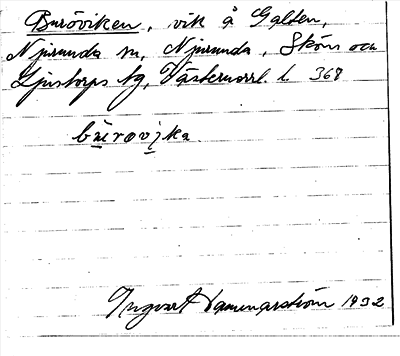 Buröviken, vik å Galten,
Njurunda sn, Njurunda, Sköns och
Ljustorps tg, Västernorrl. l. 368
Ingvart Hammarström 1932